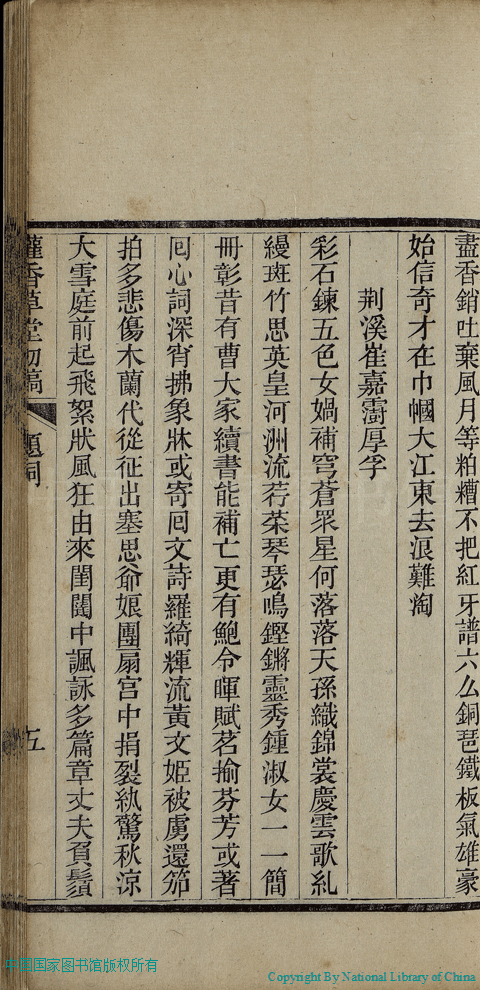 盡香銷吐棄風月等粕糟不把紅牙譜六么銅琶鐵板氣雄豪
始信奇才在巾幗大江東去浪難淘
荆溪崔嘉澍厚孚
彩石鍊五色女媧補穹蒼眾星何落落天孫織錦裳慶雲歌糺
縵斑竹思英皇河洲流荇菜琴瑟鳴鏗鏘靈秀鍾淑女一一簡
冊彰昔有曹大家續書能補亡更有鮑令暉賦茗揄芬芳或著
囘心詞深宵拂象牀或寄囘文詩羅綺輝流黃文姬被虜還笳
拍多悲傷木蘭代從征出塞思爺娘團扇宮中捐裂紈驚秋涼
大雪庭前起飛絮狀風狂由來閨闥中諷詠多篇章丈夫負鬚
香草堂初稿
題詞
五
中国国家图书馆版权所有
Copyright By National Library of China